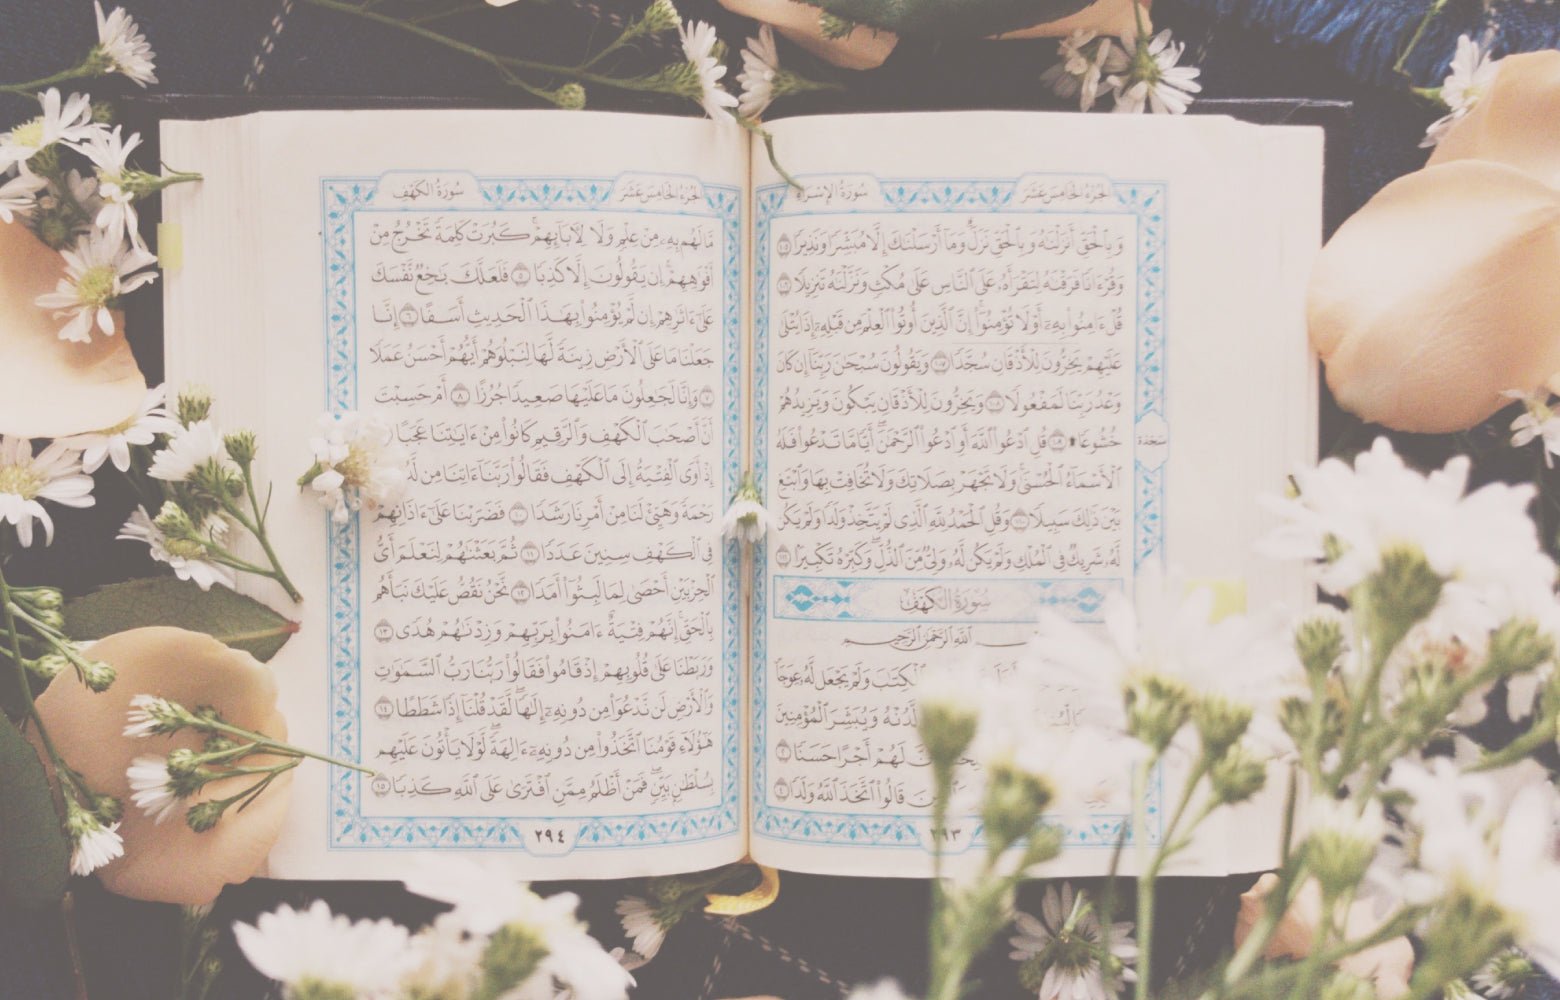 سُورَةُ الإِسْرَاء
الجُزْءُ الخَامِسَ عَشَرَ
وَبِٱلْحَقِّ أَنزَلْنَٰهُ وَبِٱلْحَقِّ نَزَلَ ۗ وَمَآ أَرْسَلْنَٰكَ إِلَّا مُبَشِّرًا وَنَذِيرًا ١٠٥
وَقُرْءَانًا فَرَقْنَٰهُ لِتَقْرَأَهُۥ عَلَى ٱلنَّاسِ عَلَىٰ مُكْثٍ وَنَزَّلْنَٰهُ تَنزِيلًا ١٠٦
قُلْ ءَامِنُوا۟ بِهِۦٓ أَوْ لَا تُؤْمِنُوٓا۟ ۚ إِنَّ ٱلَّذِينَ أُوتُوا۟ ٱلْعِلْمَ مِن قَبْلِهِۦٓ إِذَا يُتْلَىٰ
عَلَيْهِمْ يَخِرُّونَ لِلْأَذْقَانِ سُجَّدًا ١٠٧ وَيَقُولُونَ سُبْحَٰنَ رَبِّنَآ إِن كَانَ
وَعْدُ رَبِّنَا لَمَفْعُولًا ١٠٨ وَيَخِرُّونَ لِلْأَذْقَانِ يَبْكُونَ وَيَزِيدُهُمْ
خُشُوعًا ۩ ١٠٩ قُلِ ٱدْعُوا۟ ٱللَّهَ أَوِ ٱدْعُوا۟ ٱلرَّحْمَٰنَ ۖ أَيًّا مَّا تَدْعُوا۟ فَلَهُ
سَجْدَة
ٱلْأَسْمَآءُ ٱلْحُسْنَىٰ ۚ وَلَا تَجْهَرْ بِصَلَاتِكَ وَلَا تُخَافِتْ بِهَا وَٱبْتَغِ
بَيْنَ ذَٰلِكَ سَبِيلًا ١١٠ وَقُلِ ٱلْحَمْدُ لِلَّهِ ٱلَّذِى لَمْ يَتَّخِذْ وَلَدًا وَلَمْ يَكُن
لَّهُۥ شَرِيكٌ فِى ٱلْمُلْكِ وَلَمْ يَكُن لَّهُۥ وَلِىٌّ مِّنَ ٱلذُّلِّ ۖ وَكَبِّرْهُ تَكْبِيرًۢا ١١١
سُورَةُ الكَهْفِ
ٱللَّهِ ٱلرَّحْمَٰنِ ٱلرَّحِيمِ
ٱلْكِتَٰبَ وَلَمْ يَجْعَل لَّهُۥ عِوَجَا
لَّدُنْهُ وَيُبَشِّرَ ٱلْمُؤْمِنِينَ
لَهُمْ أَجْرًا حَسَنًا ٢
قَالُوا۟ ٱتَّخَذَ ٱللَّهُ وَلَدًا ٤
٢٩٣
سُورَةُ الكَهْفِ
الجُزْءُ الخَامِسَ عَشَرَ
مَّا لَهُم بِهِۦ مِنْ عِلْمٍ وَلَا لِـَٔابَآئِهِمْ ۚ كَبُرَتْ كَلِمَةً تَخْرُجُ مِنْ
أَفْوَٰهِهِمْ ۚ إِن يَقُولُونَ إِلَّا كَذِبًا ٥ فَلَعَلَّكَ بَٰخِعٌ نَّفْسَكَ
عَلَىٰٓ ءَاثَٰرِهِمْ إِن لَّمْ يُؤْمِنُوا۟ بِهَٰذَا ٱلْحَدِيثِ أَسَفًا ٦ إِنَّا
جَعَلْنَا مَا عَلَى ٱلْأَرْضِ زِينَةً لَّهَا لِنَبْلُوَهُمْ أَيُّهُمْ أَحْسَنُ عَمَلًا
٧ وَإِنَّا لَجَٰعِلُونَ مَا عَلَيْهَا صَعِيدًا جُرُزًا ٨ أَمْ حَسِبْتَ
أَنَّ أَصْحَٰبَ ٱلْكَهْفِ وَٱلرَّقِيمِ كَانُوا۟ مِنْ ءَايَٰتِنَا عَجَبًا
إِذْ أَوَى ٱلْفِتْيَةُ إِلَى ٱلْكَهْفِ فَقَالُوا۟ رَبَّنَآ ءَاتِنَا مِن لَّدُ
رَحْمَةً وَهَيِّئْ لَنَا مِنْ أَمْرِنَا رَشَدًا ١٠ فَضَرَبْنَا عَلَىٰٓ ءَاذَانِهِمْ
فِى ٱلْكَهْفِ سِنِينَ عَدَدًا ١١ ثُمَّ بَعَثْنَٰهُمْ لِنَعْلَمَ أَىُّ
ٱلْحِزْبَيْنِ أَحْصَىٰ لِمَا لَبِثُوٓا۟ أَمَدًا ١٢ نَّحْنُ نَقُصُّ عَلَيْكَ نَبَأَهُم
بِٱلْحَقِّ ۚ إِنَّهُمْ فِتْيَةٌ ءَامَنُوا۟ بِرَبِّهِمْ وَزِدْنَٰهُمْ هُدًى ١٣
وَرَبَطْنَا عَلَىٰ قُلُوبِهِمْ إِذْ قَامُوا۟ فَقَالُوا۟ رَبُّنَا رَبُّ ٱلسَّمَٰوَٰتِ
وَٱلْأَرْضِ لَن نَّدْعُوَا۟ مِن دُونِهِۦٓ إِلَٰهًا ۖ لَّقَدْ قُلْنَآ إِذًا شَطَطًا ١٤
هَٰٓؤُلَآءِ قَوْمُنَا ٱتَّخَذُوا۟ مِن دُونِهِۦٓ ءَالِهَةً ۖ لَّوْلَا يَأْتُونَ عَلَيْهِم
بِسُلْطَٰنٍۭ بَيِّنٍ ۖ فَمَنْ أَظْلَمُ مِمَّنِ ٱفْتَرَىٰ عَلَى ٱللَّهِ كَذِبًا ١٥
٢٩٤